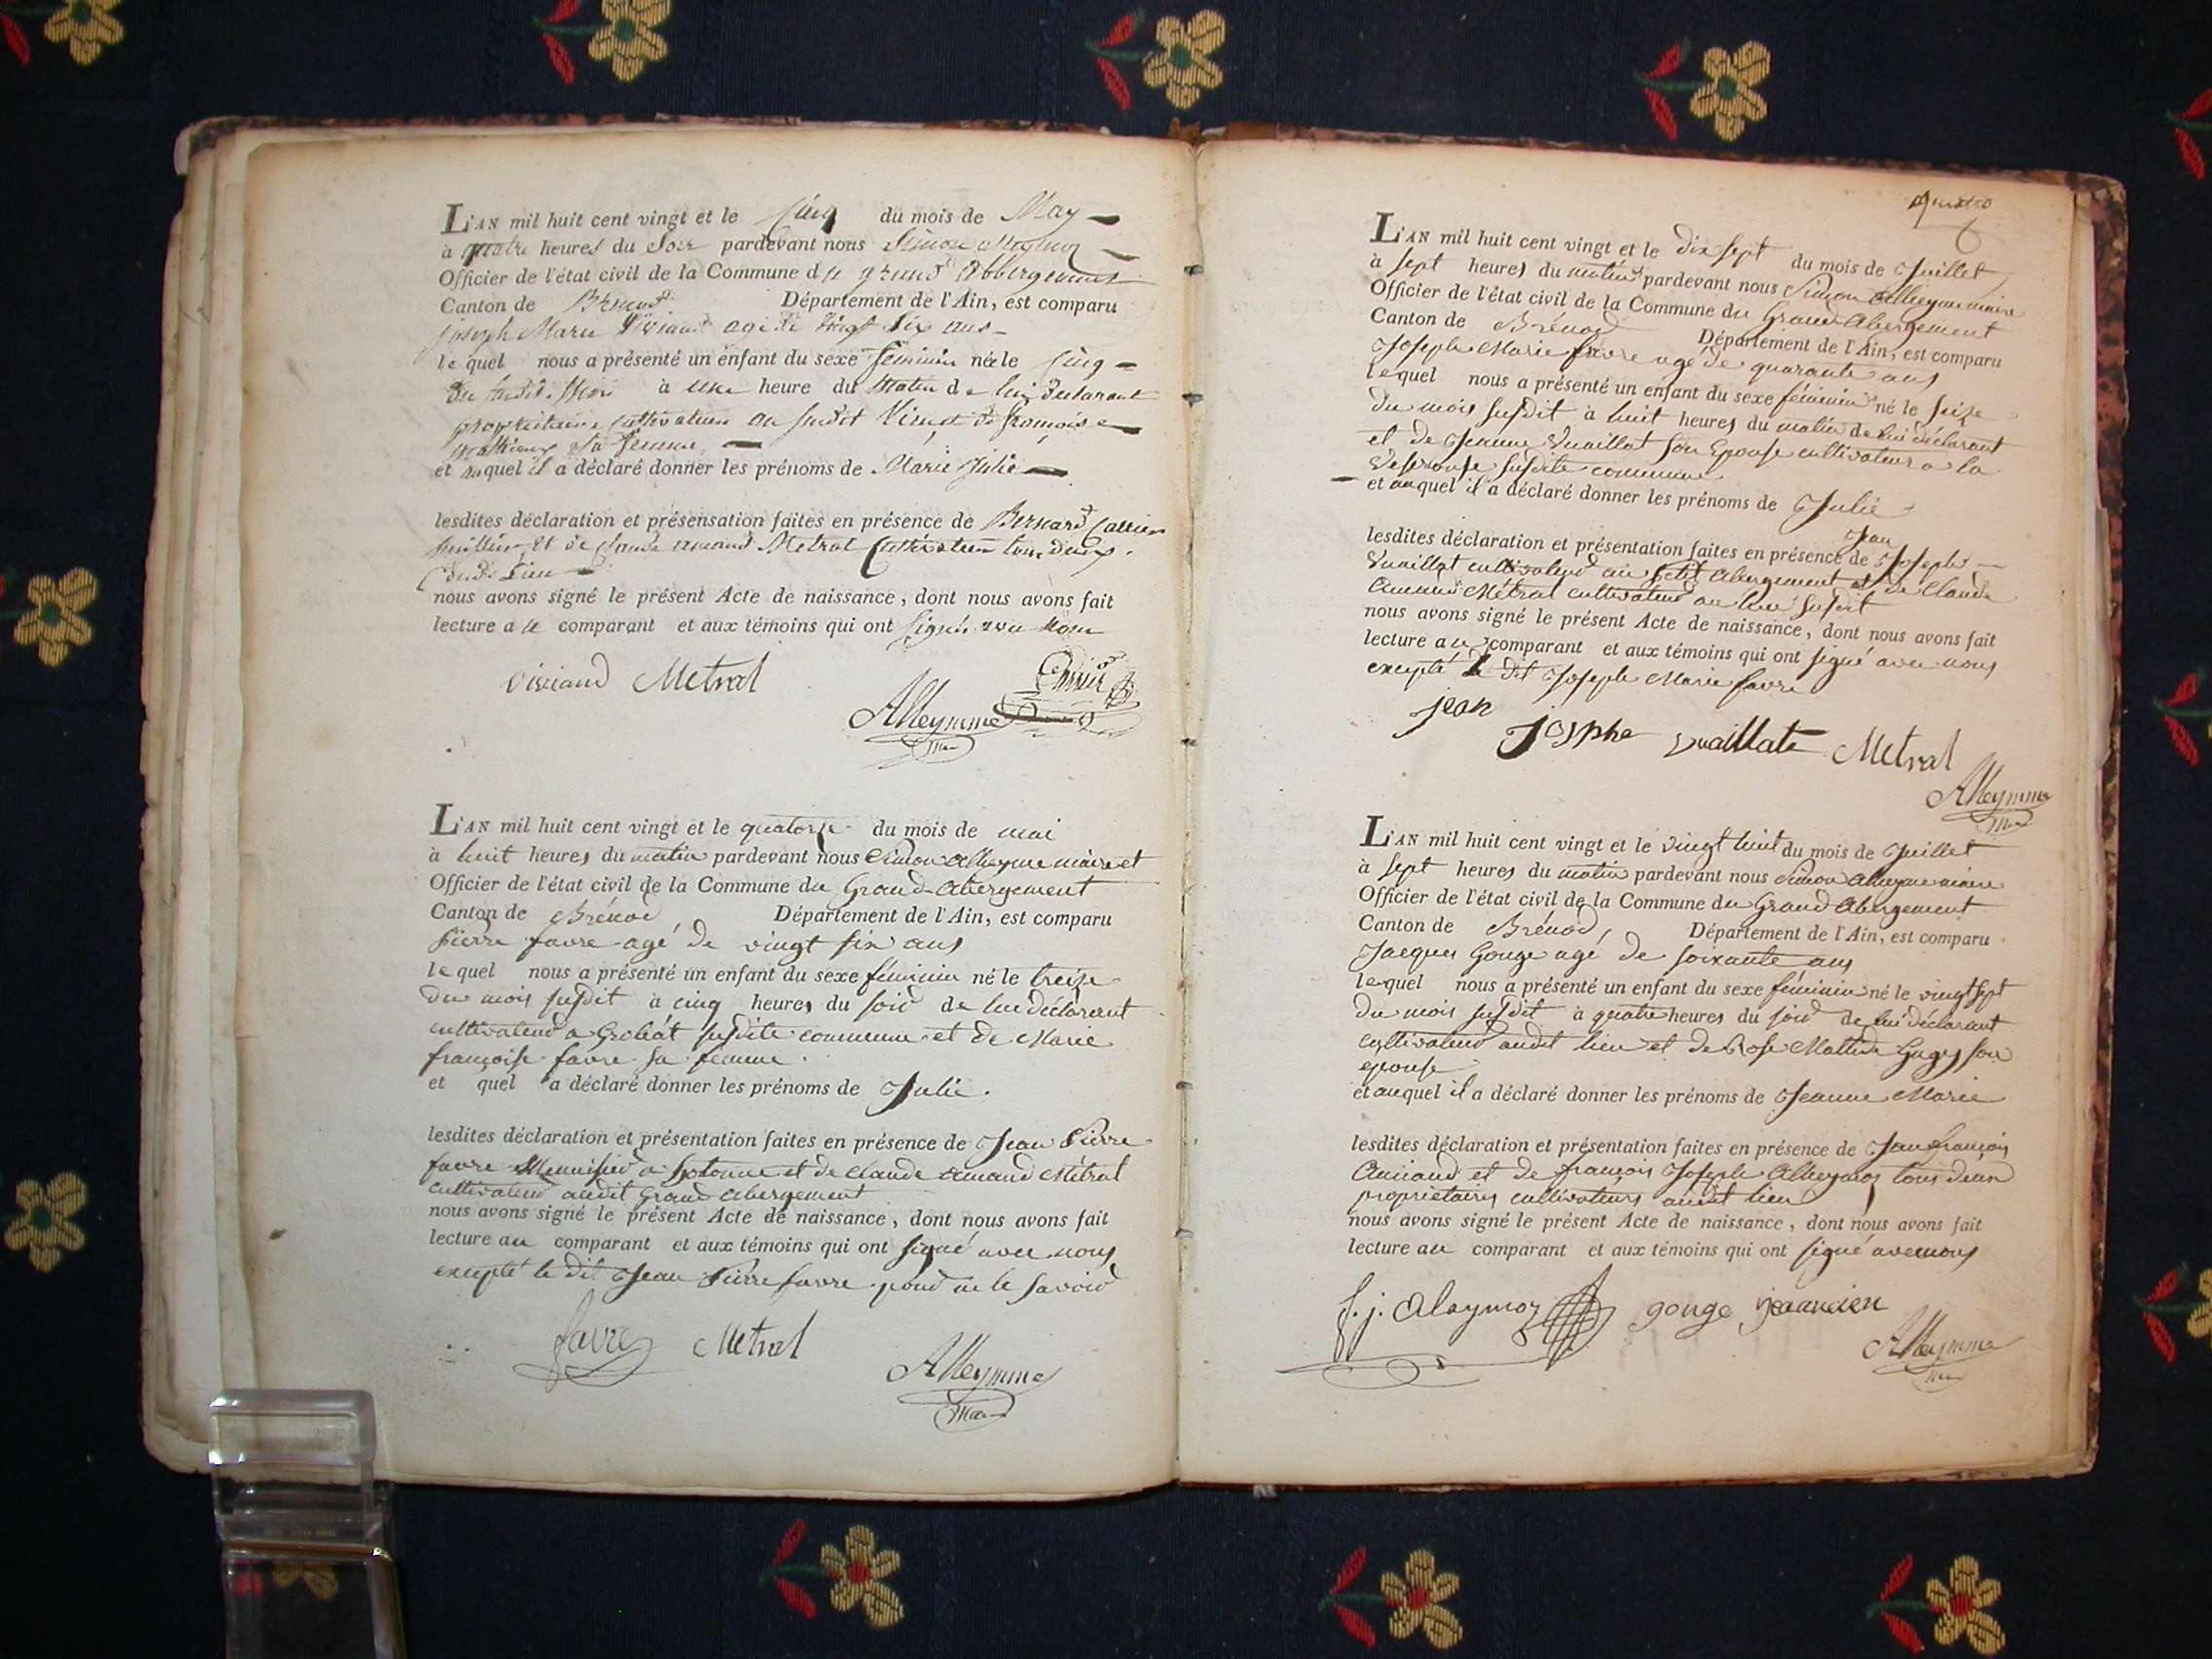 L'AN mil huit cent vingt et le Cinq du mois de May
à quatre heures du Soir pardevant nous Simon
Officier de l'état civil de la Commune d le grand Abbergement
Canton de Brenod Département de l'Ain, est comparu
joseph Marie Viviand agé de vingt Six ans
le quel nous a présenté un enfant du sexe feminin née le Cinq
du à une heure du Matin de lui declarant
proprietaire Cultivateur au de
sa femme
et auquel il a déclaré donner les prénoms de Marie Julie
lesdites déclaration et présensation faites en présence de Bernard
et de Claude amand Metral Cultivateur tous deux
dudit Lieu
nous avons signé le présent Acte de naissance, dont nous avons fait
lecture a le comparant et aux témoins qui ont Signés avec Nous
viviand Metral
Alleymme
L'AN mil huit cent vingt et le quatorze du mois de mai
à huit heures du matin pardevant nous Simon Alleymme maire et
Officier de l'état civil de la Commune du Grand-Abergement
Canton de Brénod Département de l'Ain, est comparu
Pierre favre agé de vingt six ans
lequel nous a présenté un enfant du sexe féminin né le treize
du mois susdit à cinq heures du soir de lui déclarant
cultivateur a susdite commune et de Marie
françoise favre sa femme
et quel a déclaré donner les prénoms de Julie.
lesdites déclaration et présentation faites en présence de Jean Pierre
favre Menuisier a hotonne et de Claude Amand Métral
cultivateur audit Grand-abergement
nous avons signé le présent Acte de naissance, dont nous avons fait
lecture au comparant et aux témoins qui ont signé avec nous
excepté le dit Jean Pierre favre pour ne le savoir
favre Metral
Alleymme
L'AN mil huit cent vingt et le dix sept du mois de Juillet
à sept heures du matin pardevant nous Simon Alleymme maire
Officier de l'état civil de la Commune du Grand Abergement
Canton de Brénod Département de l'Ain, est comparu
Joseph Marie favre agé de quarante ans
lequel nous a présenté un enfant du sexe féminin né le seize
du mois susdit à huit heures du matin de lui déclarant
et de Jeanne Vuaillat son Epouse cultivateur a la
susdite commune
et auquel il a déclaré donner les prénoms de Julie
Jean
lesdites déclaration et présentation faites en présence de Joseph
Vuaillat cultivateur au petit Abergement et de Claude
Amand Métral cultivateur au lieu susdit
nous avons signé le présent Acte de naissance, dont nous avons fait
lecture au comparant et aux témoins qui ont signé avec nous
excepté le dit Joseph Marie favre
jean
josphe vuaillate Metral
Alleymme
L'AN mil huit cent vingt et le vingt huit du mois de Juillet
à sept heures du matin pardevant nous Simon Alleymme maire
Officier de l'état civil de la Commune du Grand Abergement
Canton de Brénod, Département de l'Ain, est comparu
Jacques Gouge agé de soixante ans
lequel nous a présenté un enfant du sexe féminin né le vingt sept
du mois susdit à quatre heures du soir de lui déclarant
cultivateur audit lieu et de Rose son
epouse
et auquel il a déclaré donner les prénoms de Jeanne Marie
lesdites déclaration et présentation faites en présence de Jean françois
et de françois Joseph tous deux
proprietaires cultivateurs audit lieu
nous avons signé le présent Acte de naissance, dont nous avons fait
lecture au comparant et aux témoins qui ont signé avec nous
f. j. alaymoz gouge
Alleymme